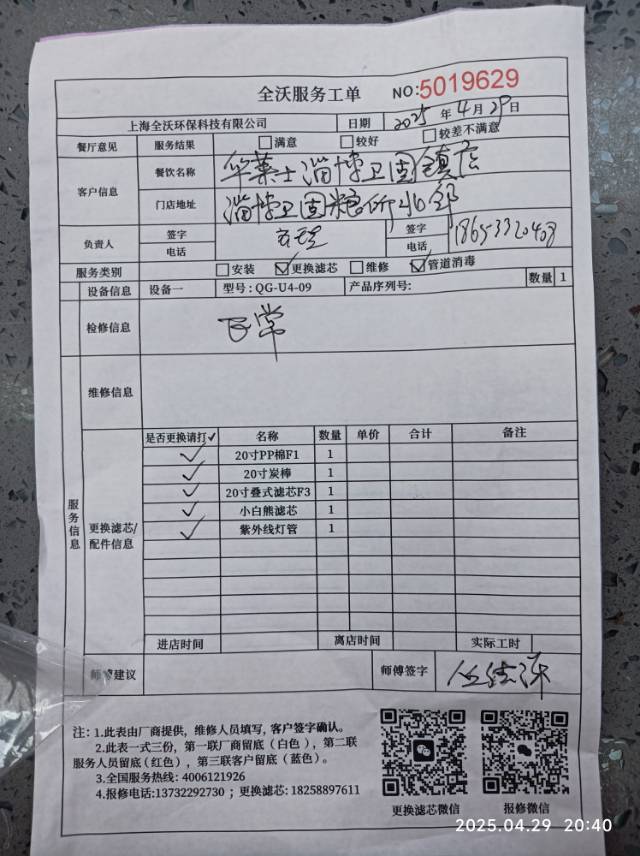 全沃服务工单 NO:5019629
上海全沃环保科技有限公司 日期 2025年4月29日
餐厅意见 服务结果 □满意 □较好 □较差不满意
客户信息 餐饮名称 华莱士淄博卫固镇店
门店地址 淄博卫固粮所北邻
负责人 签字 签字
电话 电话 18653320408
服务类别 □安装 ☑更换滤芯 □维修 ☑管道消毒
设备信息 设备一 型号:QG-U4-09 产品序列号: 数量 1
检修信息 正常
维修信息
服务信息
更换滤芯/配件信息
是否更换请打✓ 名称 数量 单价 合计 备注
✓ 20寸PP棉F1 1
✓ 20寸炭棒 1
✓ 20寸叠式滤芯F3 1
✓ 小白熊滤芯 1
✓ 紫外线灯管 1
进店时间 离店时间 实际工时
师傅建议 师傅签字
注: 1.此表由厂商提供, 维修人员填写, 客户签字确认。
2.此表一式三份, 第一联厂商留底(白色), 第二联
服务人员留底(红色), 第三联客户留底(蓝色)。
3.全国服务热线: 4006121926
4.报修电话:13732292730 ; 更换滤芯: 18258897611
更换滤芯微信 报修微信
2025.04.29 20:40